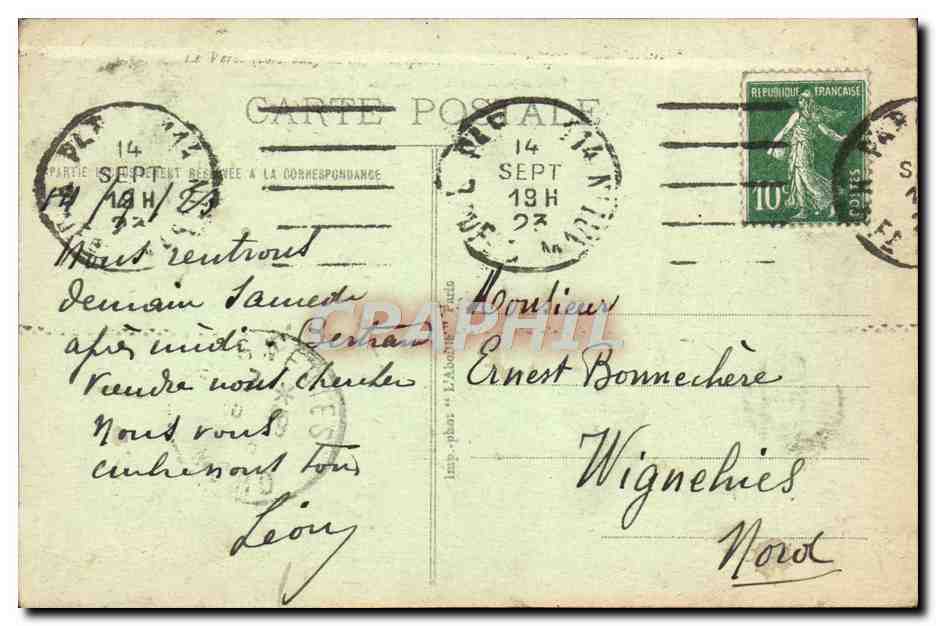 CARTE POSTALE
RÉPUBLIQUE FRANÇAISE
10c
POSTES
14
SEPT
19 H
23
14
SEPT
19 H
23
A LA CORRESPONDANCE
14/9/23
Nous rentrons
demain Samedi
après midi Bertrand
viendra nous chercher
Nous vous
embrassons tous
Léon
Imp.-phot "L'Abeille" Paris
Monsieur
Ernest Bonnechère
Wignehies
Nord
CPAPHIL